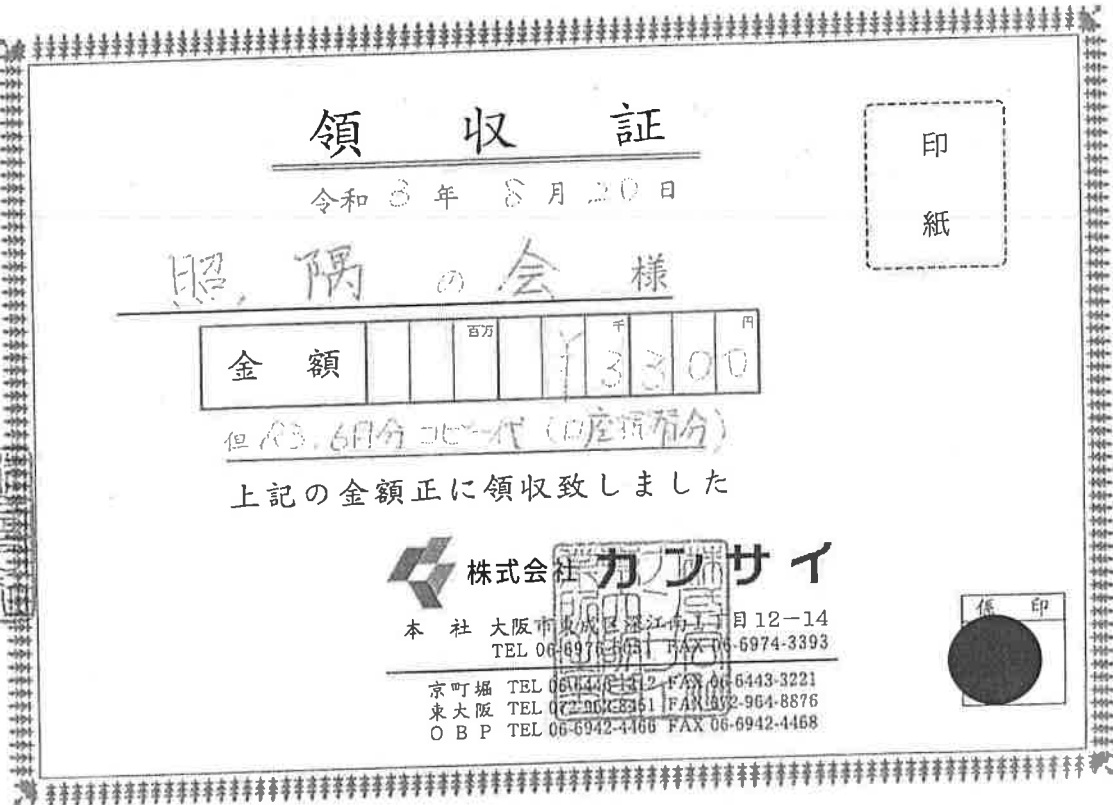 領収証
印紙
令和 3 年 8 月 20 日
照隅の会 様
金額 百万 千 円
¥3300
但 R3.6月分コピー代（口座振替分）
上記の金額正に領収致しました
株式会社 カンサイ
本社 大阪市東成区深江南1丁目12-14
TEL 06-6976-5051 FAX 06-6974-3393
京町堀 TEL FAX 06-6443-3221
東大阪 TEL 072-963-8451 FAX 072-964-8876
OBP TEL 06-6942-4466 FAX 06-6942-4468
係印